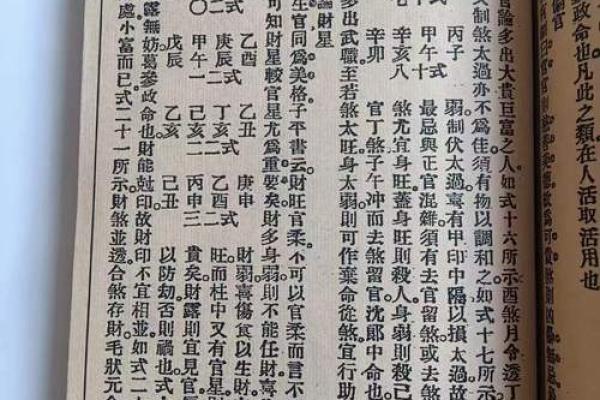 政命也凡此之類在人活取活用也
偏官
會論多出大貴巨富之人如式十六所示酉煞月令透丁
制煞太過亦不爲佳須有物以調和之如式十七所示
丙子 弱制伏太過專有甲印中隔以損太過
甲午十式 最忌與正官混雜須有去官留煞或去煞
辛亥八 煞尤宜身旺蓋身旺則殺人身弱則殺己
辛卯 官丁煞子午冲而去煞留官沈郎中命也
多出武職至若煞太旺身太弱則可作棄命從煞宜行助
論財星
生官同爲美格子平書云財旺官柔不可以官柔而言不
可知財星較官星尤爲重要矣財多身弱則不能任財喜
乙酉 乙丑 庚申 財弱喜傷食以生財
庚辰二式 丁亥二式 乙酉二式 旺而柱中又有官星
甲午一 己亥二 丙申三 貴矣財露則宜見官
戊辰 乙亥 己丑 以防劫否則禍也式
露無妨葛參政命也財能尅印故財印不宜相並如式二
處小富而已式二十一所示財煞並透合煞存財毛狀元命